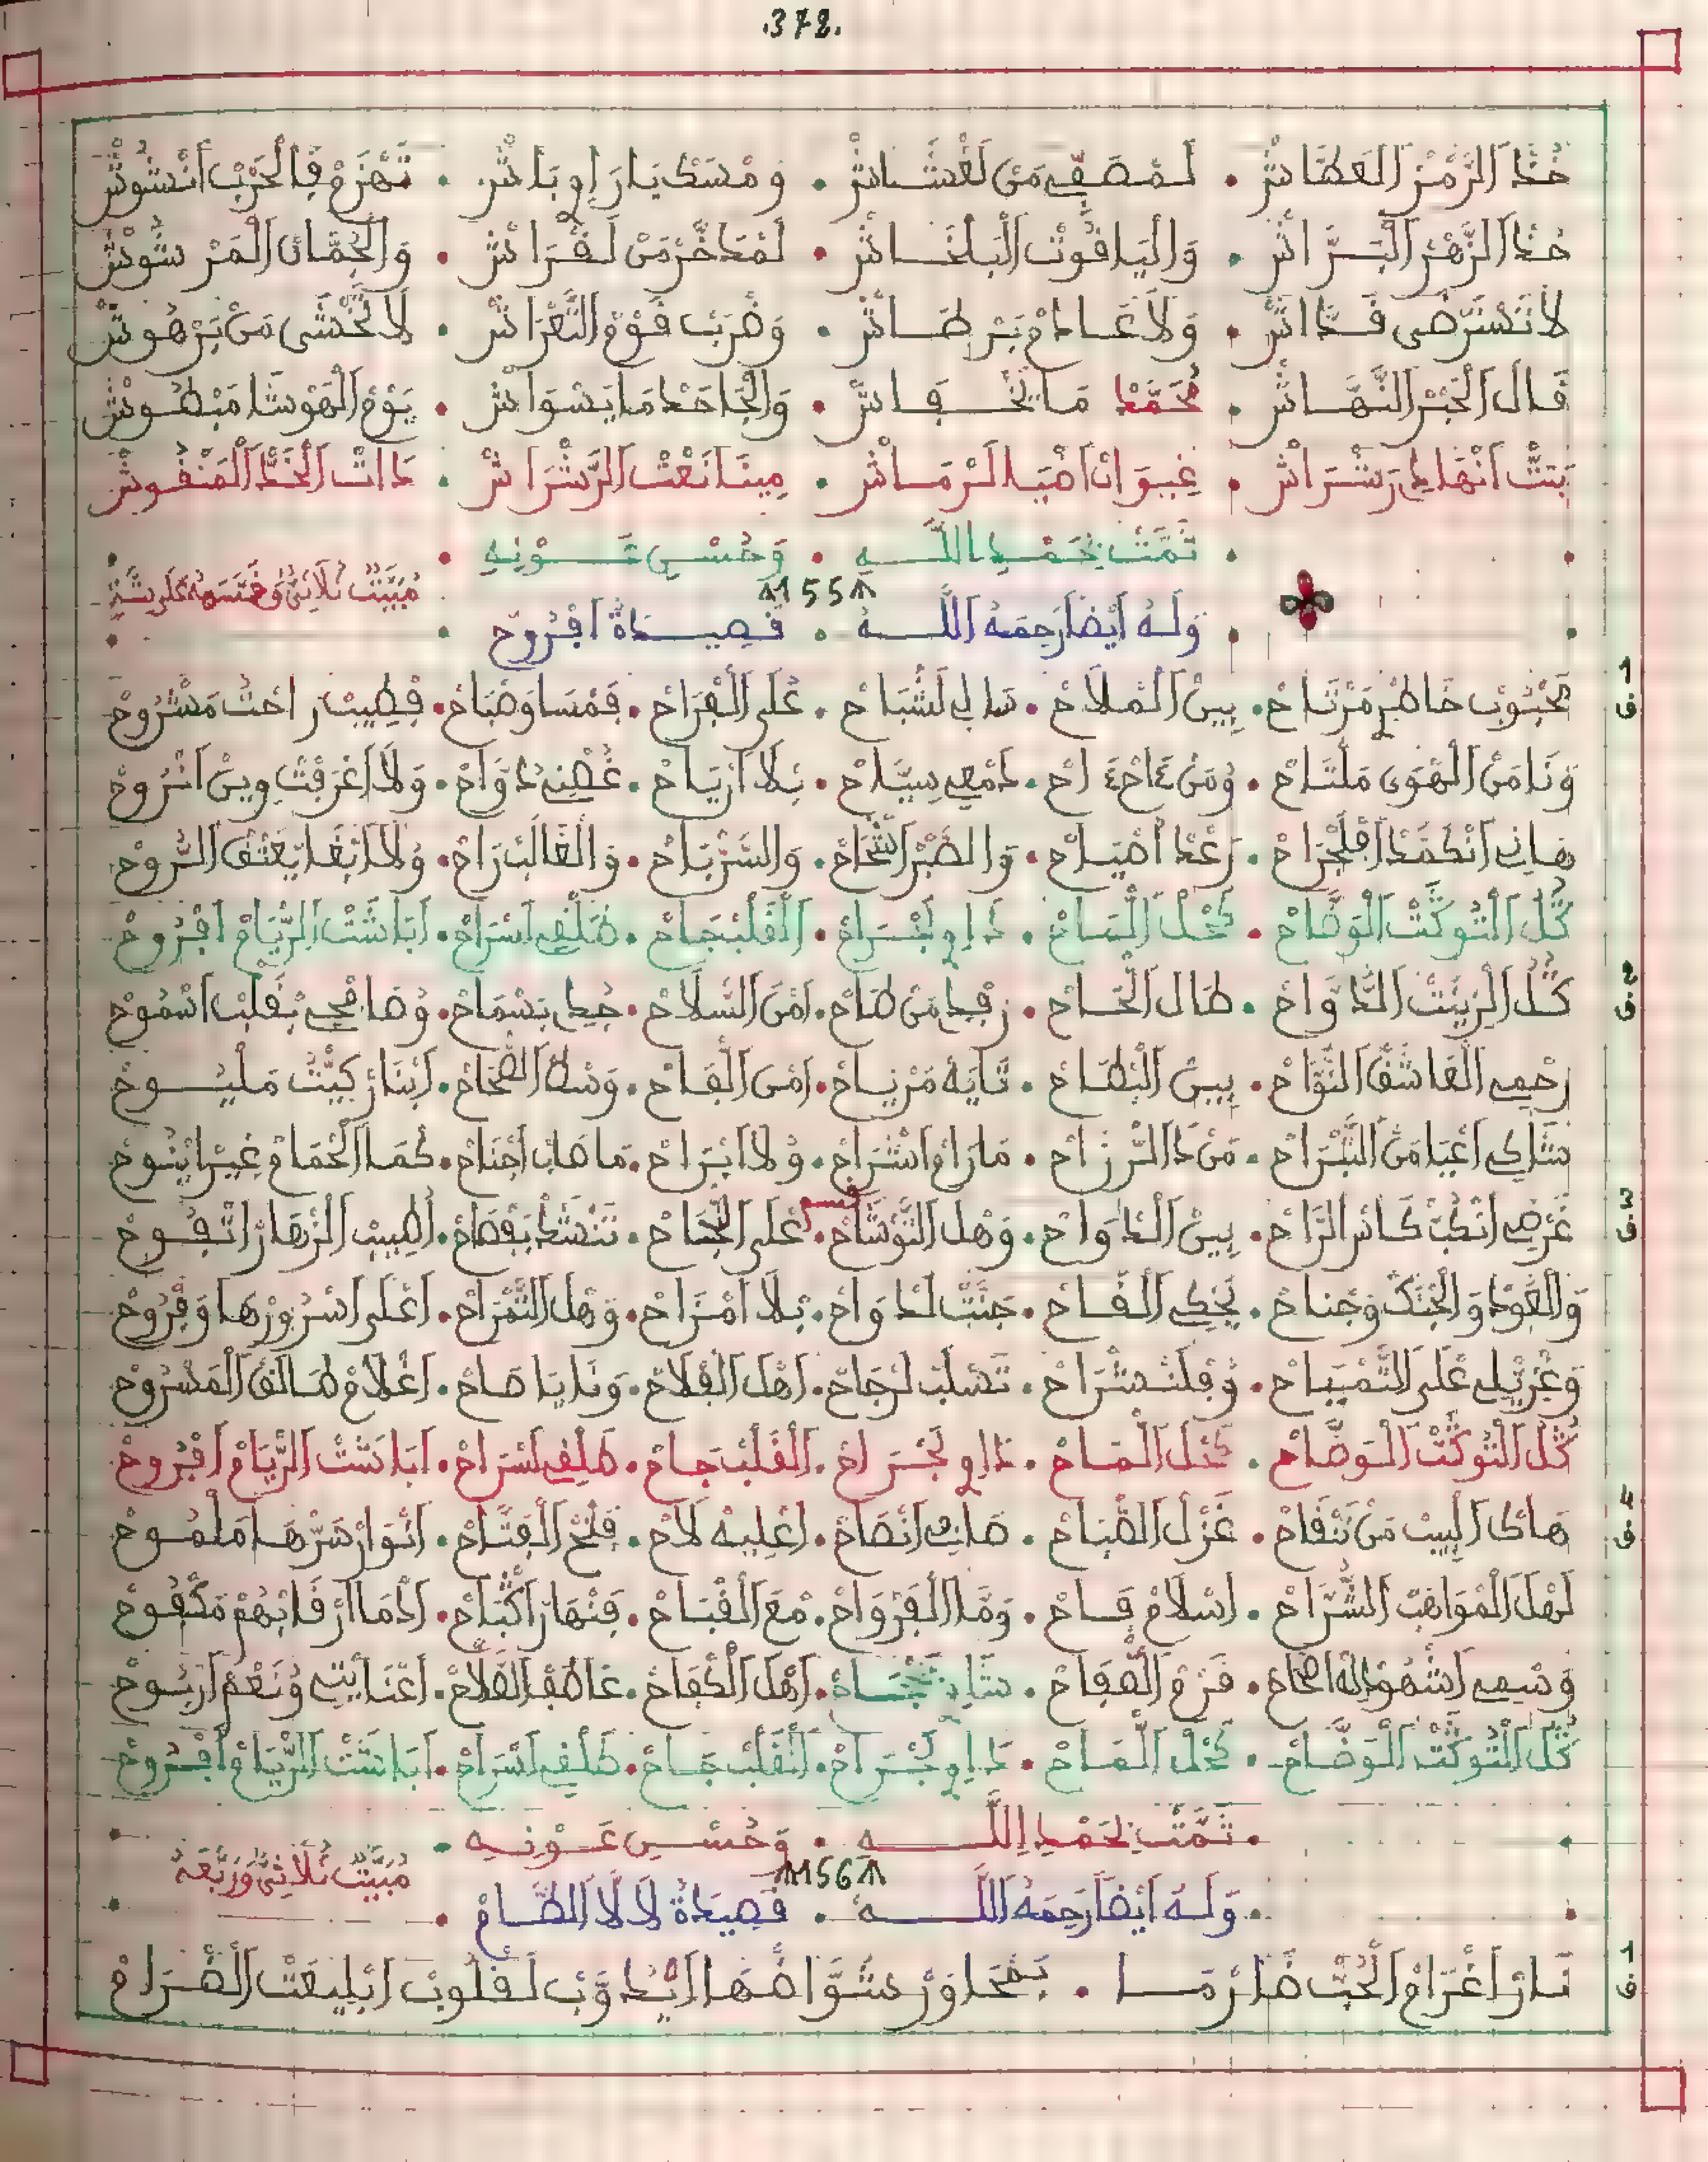 .372.
خذ الرمز العطاش • لمصفي من لغشاش • ومسك يا راوي باش • تهزم فالحرب انشوش
خذ الزهر البراش • والياقوت البلخاش • لمدخر من لفراش • والجمان المرشوش
لا تسترضى قداش • ولا عادم بر طاش • وضرب فوق النعراش • لا تخشى من برهوش
قال الحبر النهاش • محمد ما يخفاش • والجاحد ما يسواش • يوم الهوشا مبطوش
بنت انهاي رشراش • غيوان اضيا لرماش • مينا نعت الرشراش • ذات الخد المنفوش
تمت بحمد الله • وحسن عونه
مبيت ثلاثي
1155
وله أيضا رحمه الله • قصيدة افروح
1 ف
محبوب خاطر مرتاح • بين الملاح • سالي لشباح • على الفراح • فمسا وصباح • فطيب راحت مشروح
ونا من الهوى ملتاح • ومن • دمعي سياح • بلا ارياح • غصني دواح • ولا اعرفت وين انروح
هاني انكمد افلجراح • رعد اصياح • والصبر اشحاح • والسر باح • والغالب راح • ولا ابقا يعتق الروح
كل التوكت الوضاح • كحل الماح • داوي لجراح • القلب جاح • طلقي اسراح • ابا شت الريام افروح
2 ف
كل الزينت الدواح • طال الحاح • رقدي من طاح • امن السلاح • جدي بسماح • وصافحي بقلب اسموح
رحمي العاشق النواح • بين البطاح • تايه مرياح • امن اللقاح • وسط الضحاح • ابنار كيت مليوح
شاكي اعيا من التبراح • من ذا الرزاح • ما رام اشراح • ولا ابراح • ما هاب اجناح • كما الحمام غير اينوح
3 ف
غرضي انكب كاس الراح • بين الدواح • وهل التوشاح • على الجناح • تنشد بفصاح • اطيب الزهار اتفوح
والعود والجنك وجناح • يحكي الفاح • جنت لدواح • بلا امزاح • وهل التمراح • اعلى اسرورها وفروح
وغزيلي على التمياح • وقلت شراح • تسلب لرجاح • اهل الفلاح • ونا يا صاح • اغلام طالق المسروح
كل التوكت الوضاح • كحل الماح • داوي لجراح • القلب جاح • طلقي اسراح • ابا شت الريام افروح
4 ف
هاك البيب من نتفاح • غزل الضباح • صافي انصاح • اعليه لاح • فلح الفتاح • انوار سرها ملموح
لهل المواهب الشراح • اسلام فاح • وما الفرواح • مع القباح • فنهار اكباح • ادما ارقابهم مكفوح
وسمي • قزم الصفاح • شاد • اهل الكفاح • عاطف الفلاح • اعنايتي ونعم اربوح
كل التوكت الوضاح • كحل الماح • داوي لجراح • القلب جاح • طلقي اسراح • ابا شت الريام افروح
تمت بحمد الله • وحسن عونه
مبيت ثلاثي وربعه
1156
وله أيضا رحمه الله • قصيدة لا لا الطام
1 ف
نار اغرام الحب ضارما • ايدوب لقلوب ابليعت الضرام